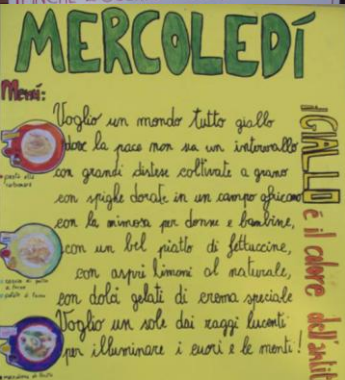 MERCOLEDÍ
Menù:
Voglio un mondo tutto giallo
dove la pace non sia un intervallo
con grandi distese coltivate a grano
con spighe dorate in un campo africano
con la mimosa per donne e bambine,
con un bel piatto di fettuccine,
con aspri limoni al naturale,
con dolci gelati di crema speciale
Voglio un sole dai raggi lucenti
per illuminare i cuori e le menti!
pasta alla
carbonara
di pollo
al forno
patate al forno
macedonia di frutta
il GIALLO è il calore dell'